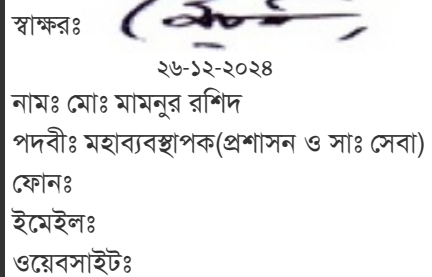 স্বাক্ষরঃ
২৬-১২-২০২৪
নামঃ মোঃ মামনুর রশিদ
পদবীঃ মহাব্যবস্থাপক(প্রশাসন ও সাঃ সেবা)
ফোনঃ
ইমেইলঃ
ওয়েবসাইটঃ